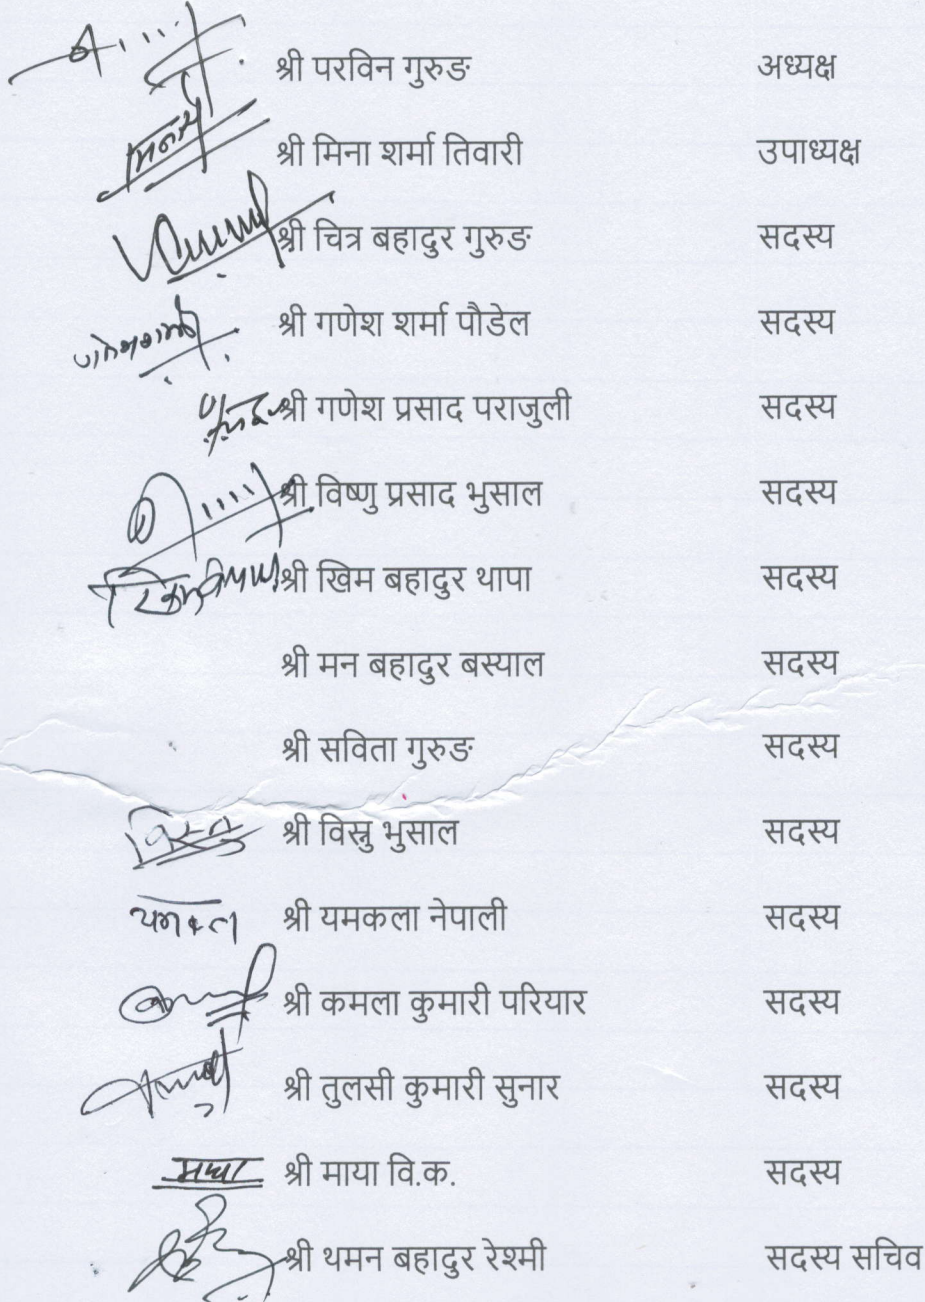 श्री परविन गुरुङ अध्यक्ष
श्री मिना शर्मा तिवारी उपाध्यक्ष
श्री चित्र बहादुर गुरुङ सदस्य
श्री गणेश शर्मा पौडेल सदस्य
श्री गणेश प्रसाद पराजुली सदस्य
श्री विष्णु प्रसाद भुसाल सदस्य
श्री खिम बहादुर थापा सदस्य
श्री मन बहादुर बस्याल सदस्य
श्री सविता गुरुङ सदस्य
श्री विस्नु भुसाल सदस्य
श्री यमकला नेपाली सदस्य
श्री कमला कुमारी परियार सदस्य
श्री तुलसी कुमारी सुनार सदस्य
माया श्री माया वि.क. सदस्य
श्री थमन बहादुर रेश्मी सदस्य सचिव